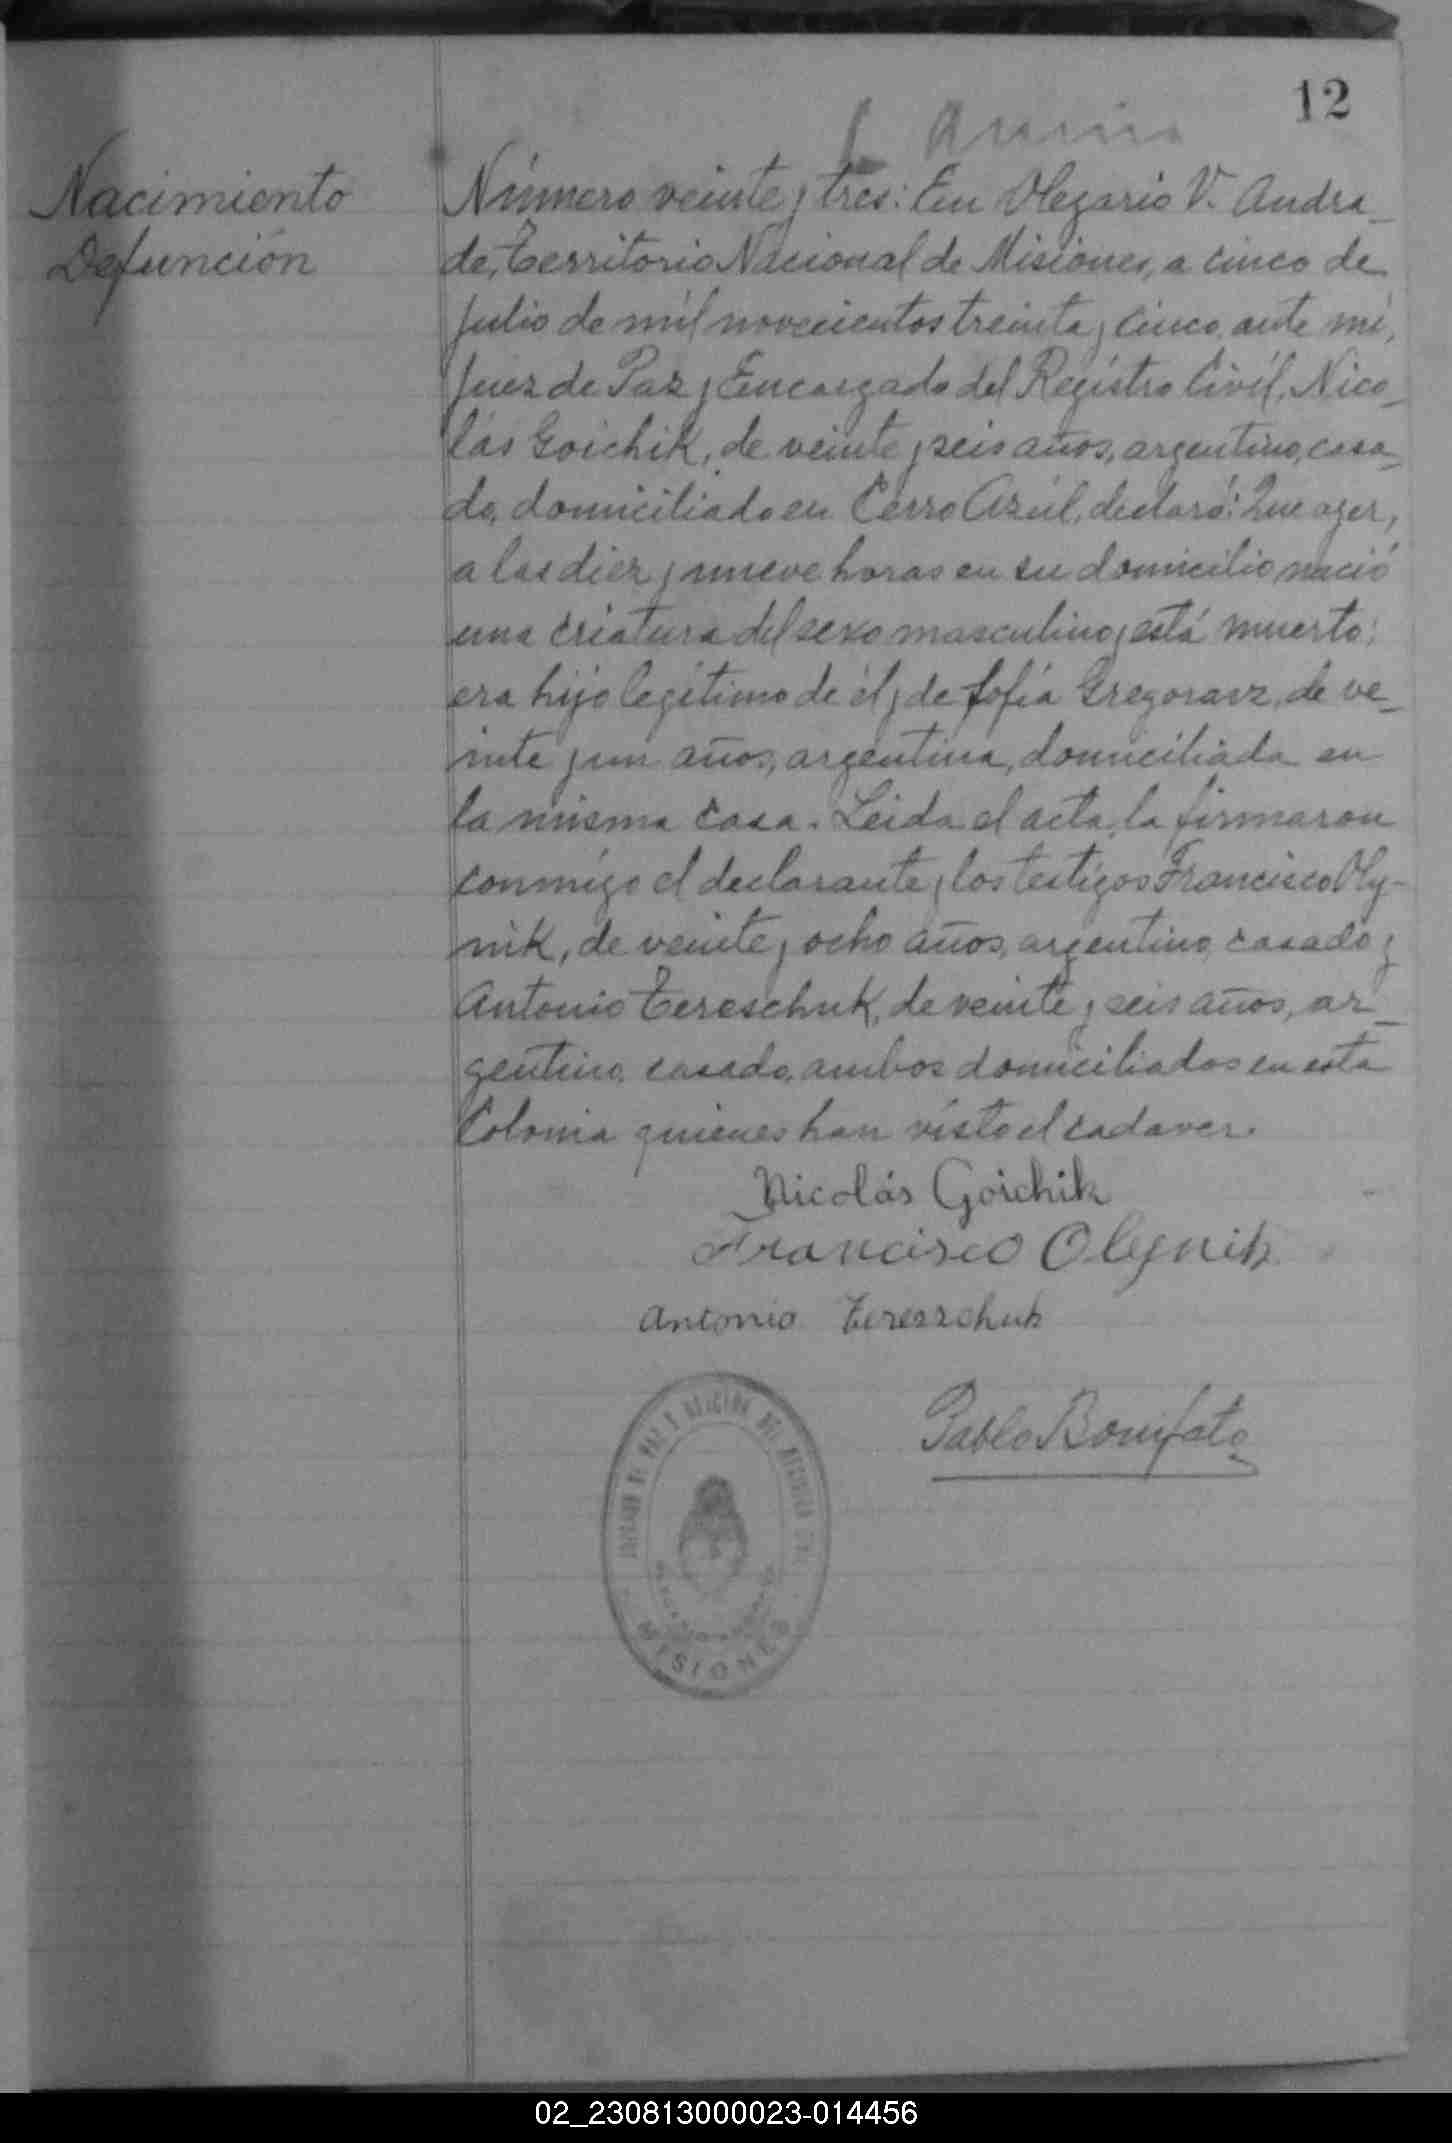 12
Nacimiento
Defunción
Número veinte y tres: En Olegario V. Andra_
de, Territorio Nacional de Misiones, a cinco de
julio de mil novecientos treinta y cinco, ante mí,
Juez de Paz y Encargado del Registro Civil, Nico_
lás Goichik, de veinte y seis años, argentino, casa_
do, domiciliado en Cerro Azúl, declaró: Que ayer,
a las diez y nueve horas en su domicilio nació
una criatura del sexo masculino y está muerto;
era hijo legítimo de él y de Sofía Gregorarz, de ve_
inte y un años, argentina, domiciliada en
la misma casa. Leida el acta, la firmaron
conmigo el declarante y los testigos Francisco Oly-
nik, de veinte y ocho años, argentino, casado y
Antonio Tereschuk, de veinte y seis años, ar_
gentino, casado, ambos domiciliados en esta
Colonia quienes han visto el cadaver.
Nicolás Goichik
Francisco Olynik
Antonio Tereszchuk
Pablo Bonifato
MISIONES
02_230813000023-014456